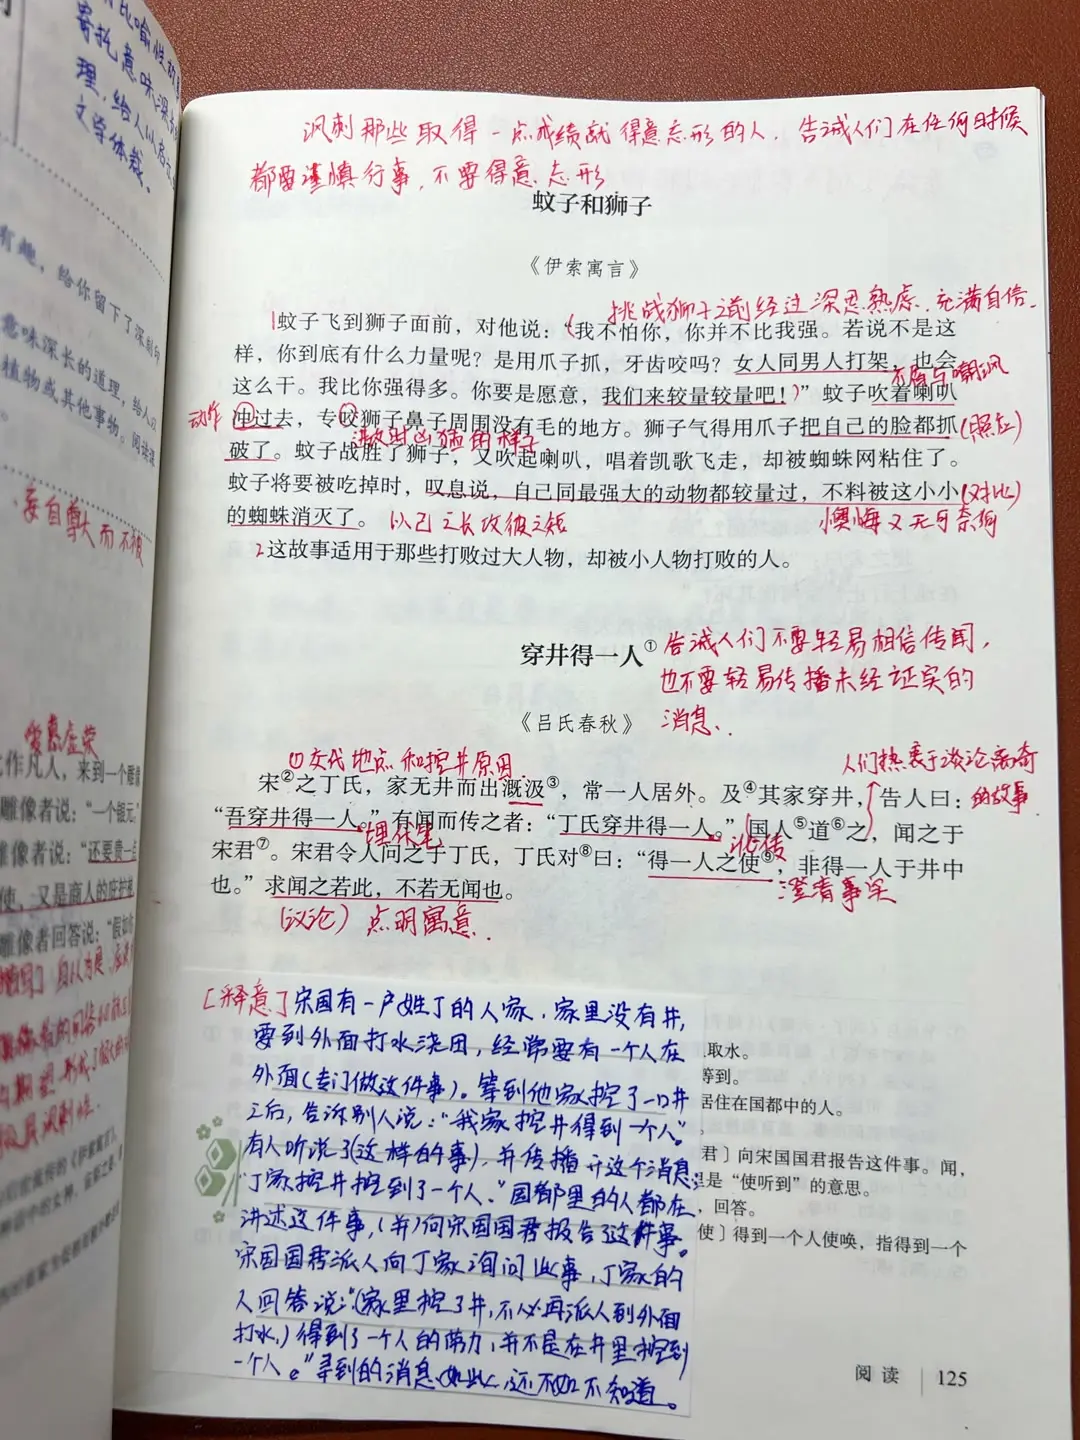 比喻性的
寄托意味深
理,给人以启
文学体裁。
有趣,给你留下了深刻印
意味深长的道理,给人以
植物或其他事物。阅读课
妄自尊大而不被
爱慕虚荣
作凡人,来到一个雕
雕像者说:“一个银元
雕像者说:“还要贵一点
使,又是商人的庇护神
雕像者回答说:“假如你
讽刺那些取得一点成绩就得意忘形的人,告诫人们在任何时候
都要谨慎行事,不要得意忘形
蚊子和狮子
《伊索寓言》
挑战狮子之前经过深思熟虑,充满自信.
1蚊子飞到狮子面前,对他说:“(我不怕你,你并不比我强。若说不是这
样,你到底有什么力量呢?是用爪子抓,牙齿咬吗?女人同男人打架,也会
不屑与嘲讽
这么干。我比你强得多。你要是愿意,我们来较量较量吧!)”蚊子吹着喇叭
动作
冲过去,专咬狮子鼻子周围没有毛的地方。狮子气得用爪子把自己的脸都抓(照应)
进攻时凶猛的样子
破了。蚊子战胜了狮子,又吹起喇叭,唱着凯歌飞走,却被蜘蛛网粘住了。
蚊子将要被吃掉时,叹息说,自己同最强大的动物都较量过,不料被这小小(对比)
的蜘蛛消灭了。 以己之长攻彼之短 懊悔又无可奈何
2这故事适用于那些打败过大人物,却被小人物打败的人。
穿井得一人① 告诫人们不要轻易相信传闻,
也不要轻易传播未经证实的
消息.
《吕氏春秋》
①交代地点和挖井原因 人们热衷于谈论离奇
的故事
宋②之丁氏,家无井而出溉汲③,常一人居外。及④其家穿井,告人曰:
“吾穿井得一人。”有闻而传之者:“丁氏穿井得一人。”(国人⑤道⑥之,闻之于
埋伏笔 讹传
宋君⑦。宋君令人问之于丁氏,丁氏对⑧曰:“得一人之使⑨,非得一人于井中
也。”求闻之若此,不若无闻也。 澄清事实
(议论)点明寓意.
[释意]宋国有一户姓丁的人家,家里没有井,
要到外面打水浇田,经常要有一个人在
外面(专门做这件事)。等到他家挖了一口井
之后,告诉别人说:“我家挖井得到一个人”
有人听说了(这样的事),并传播开这个消息:
“丁家挖井挖到了一个人。”国都里的人都在
讲述这件事,(并)向宋国国君报告了这件事。
宋国国君派人向丁家询问此事,丁家的
人回答说:“(家里挖了井,不必再派人到外面
打水,)得到了一个人的劳力,并不是在井里挖到
一个人。”寻到的消息如此,还不如不知道。
取水。
等到。
居住在国都中的人。
君〕向宋国国君报告这件事。闻,
是“使听到”的意思。
,回答。
使〕得到一个人使唤,指得到一个
阅读 125